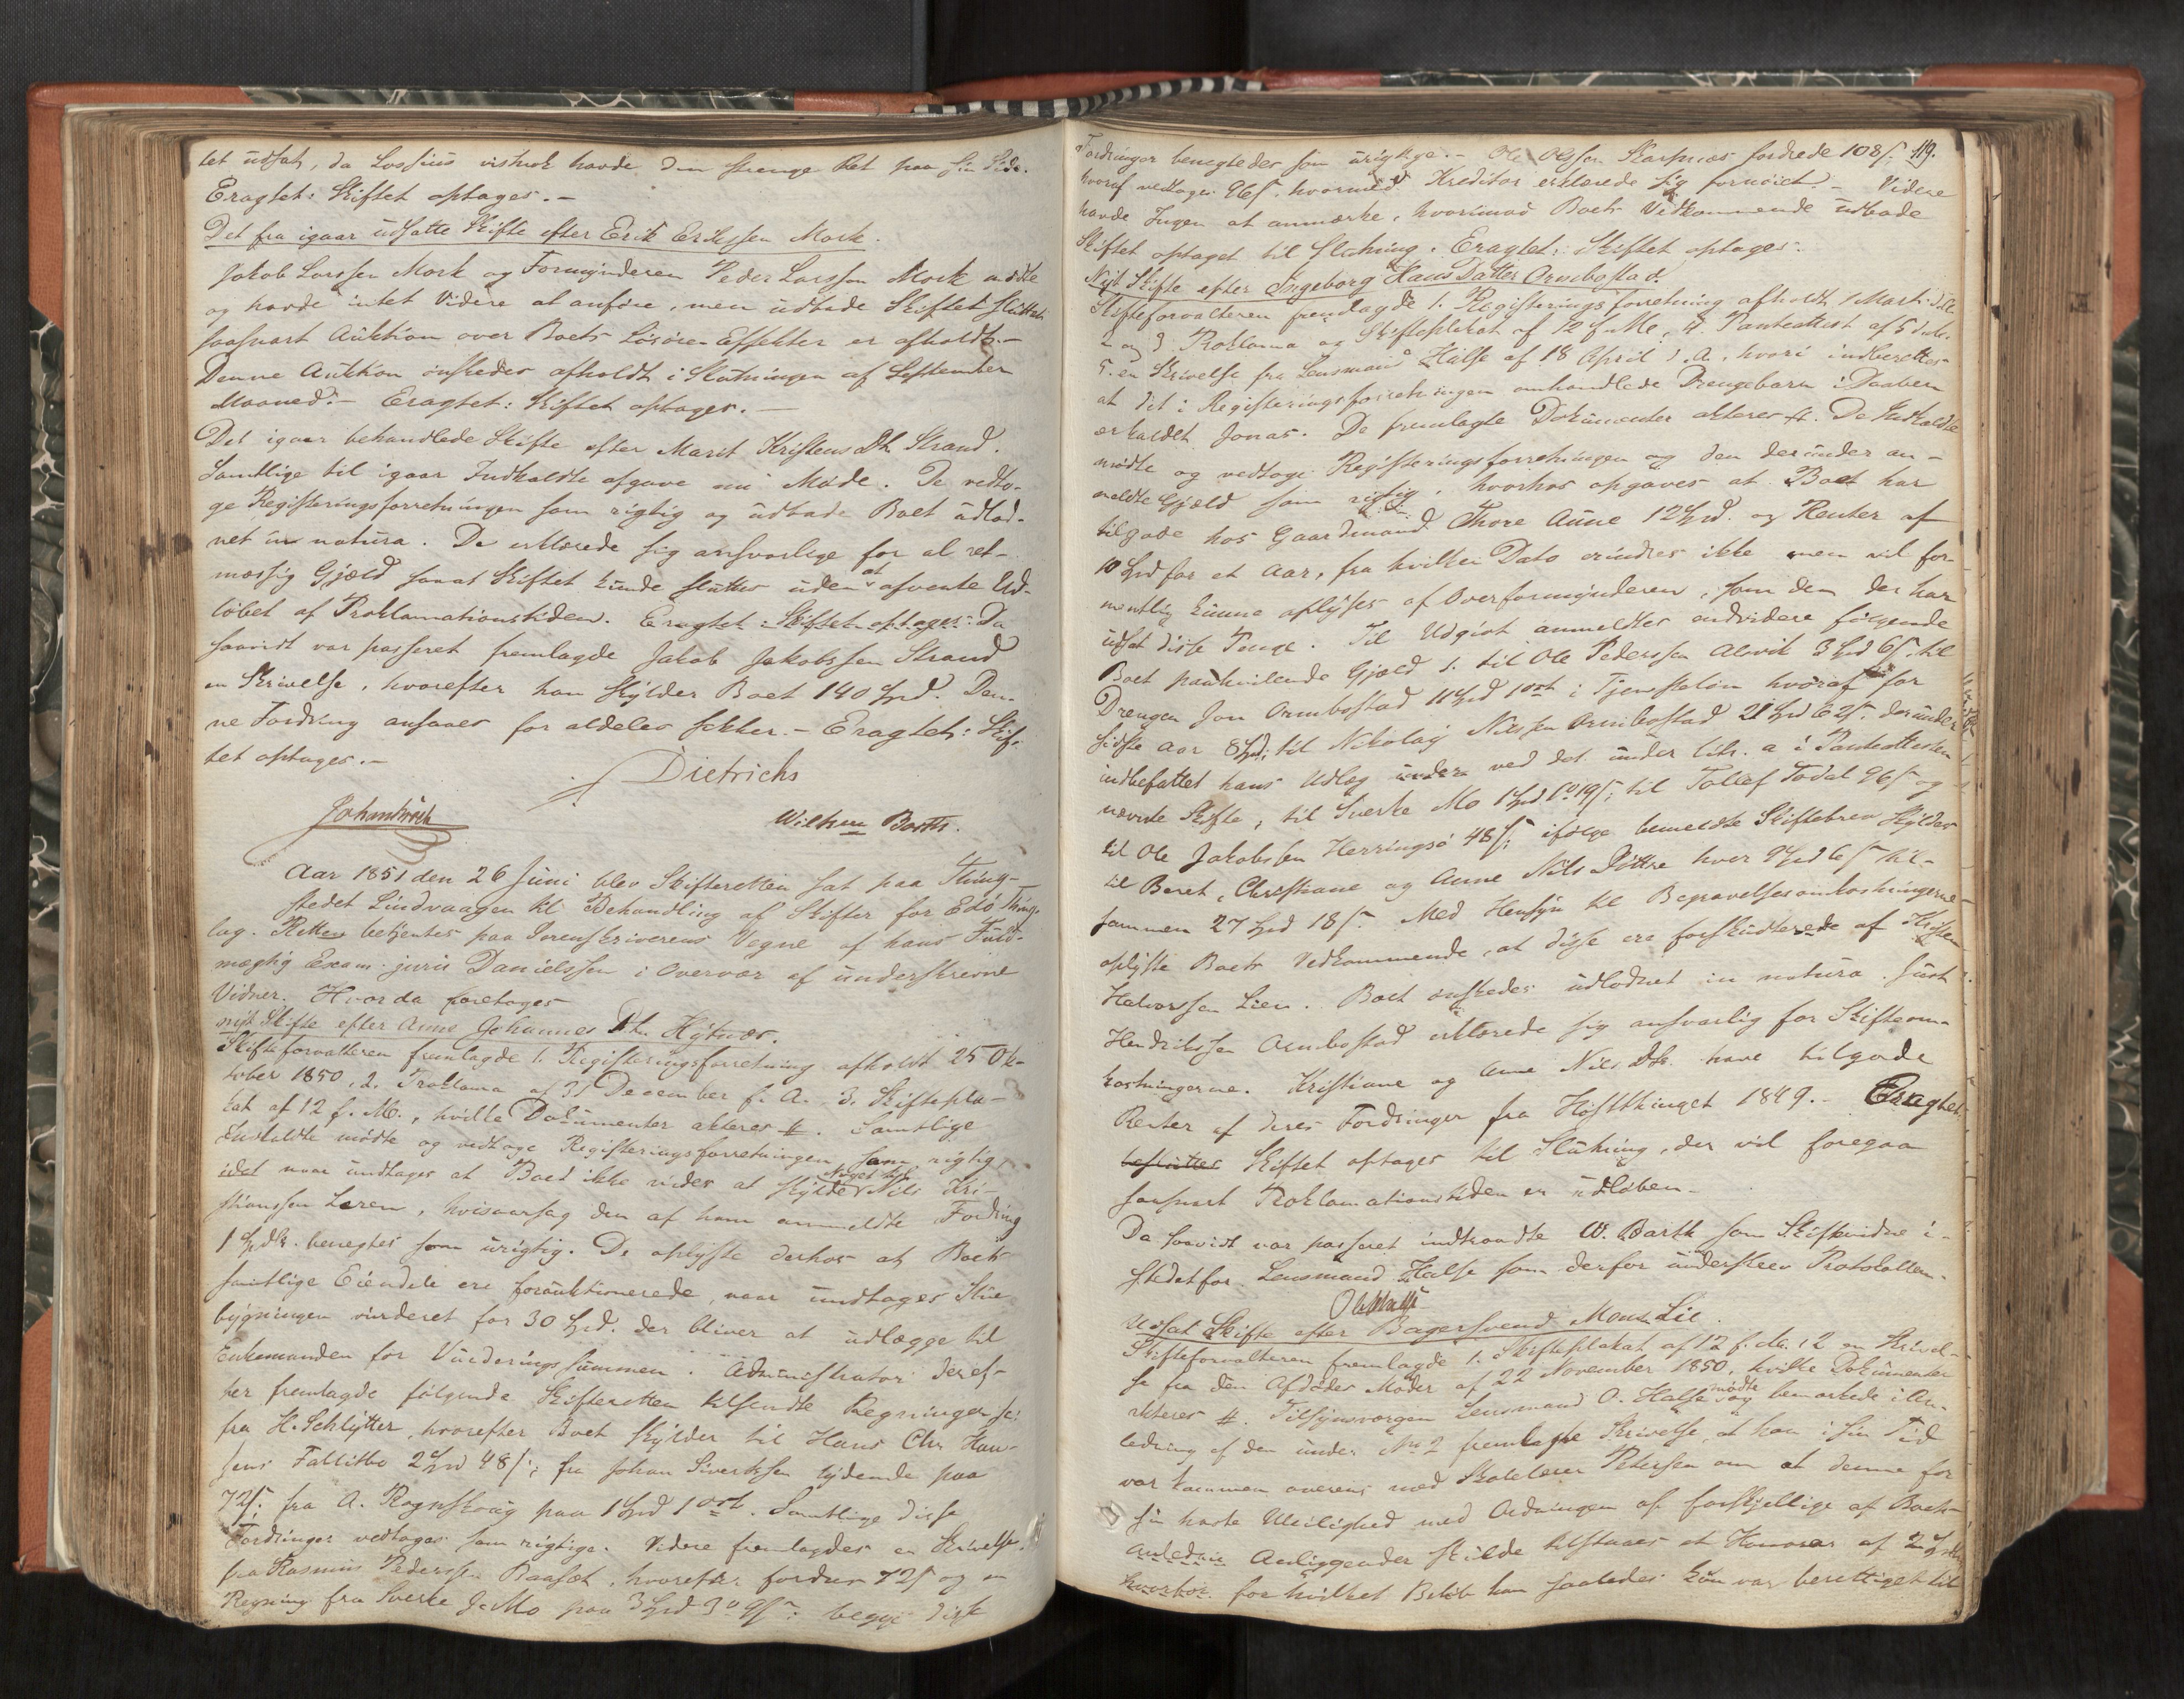 tet udsat, da Lossius vistnok havde den strenge Ret paa sin Side.
Eragtet: Skiftet optages.-
Det fra igaar udsatte Skifte efter Erik Erikssen Mork.
Jakob Larssen Mork og Formynderen Peder Larssen Mork mødte
og havde intet Videre at anføre, men udbade Skiftet sluttet
saasnart Auktion over Boets Løsøre Effekter er afholdt.-
Denne Auktion ønskedes afholdt i Slutningen af September
Maaned.- Eragtet: Skiftet optages.-
Det igaar behandlede Skifte efter Marit Kristens Dtr. Strand.
Samtlige til igaar Indkaldte afgave nu Møde. De vedto-
ge Registeringsforretningen som rigtig og udbade Boet udlod-
net in natura. De erklærede sig ansvarlige for al ret-
mæssig Gjæld saaat Skiftet kunde sluttes uden at afvente Ud-
løbet af Proklamationstiden. Eragtet: Skiftet optages. Da
saavidt var passeret fremlagde Jakob Jakobssen Strand
en Skrivelse, hvorefter han skylder Boet 140 Spd. Den-
ne Fordring ansaaes for aldeles sikker.- Eragtet: Skif-
tet optages.-
Dietrichs
Wilhm Barth.
Aar 1851 den 26 Juni blev Skifteretten sat paa Thing-
stedet Lindvaagen til Behandling af Skifter for Edø Thing-
lag. Retten betjentes paa Sorenskriverens Vegne af hans Fuld-
mægtig Exam. juris Danielssen i Overvær af underskrevne
Vidner. Hvorda foretoges
nyt Skifte efter Anne Johannes Dtr. Hytnæs.
Skifteforvalteren fremlagde 1. Registeringsforretning afholdt 25 Ok-
tober 1850, 2. Proklama af 31 December f. A. 3. Skiftepla-
kat af 12 f. M., hvilke Dokumenter akteres #. Samtlige
Indkaldte mødte og vedtoge Registeringsforretningen som rigtig,
idet naar undtages at Boet ikke vides at skylde Noget til Nils Kri-
stianssen Leren, hvisaarsag den af ham anmeldte Fordring
1 Spdlr. benegtes som urigtig. De oplyste derhos at Boets
samtlige Eiendele ere forauktionerede, naar undtages Stue
bygningen vurderet for 30 Spd. der bliver at udlægge til
Enkemanden for Vurderingssummen. Administrator deref-
ter fremlagde følgende Skifteretten tilsendte Regninger:
fra H. Schlytter, hvorefter Boet skylder til Hans Chr. Han-
sens Fallitbo 2 Spd 48 s; fra Johan Sivertsen lydende paa
72 s. fra A. Rognskoug paa 1 Spd 1 ort. Samtlige disse
Fordringer vedtoges som rigtige. Videre fremlagdes en Skrivelse
fra Rasmus Pederssen Raasæt, hvorefter fordres 72 s og en
Regning fra Sverke J. Mo paa 3 Spd 3 o 9 s: begge disse
119.
Fordringer benegtedes som urigtige.- Ole Olssen Skarpnæs fordrede 108 s.
hvoraf vedtoges 96 s. hvormed Kreditor erklærede sig fornøiet.- Videre
havde Ingen at anmærke, hvorimod Boets Vedkommende udbade
Skiftet optaget til Slutning. Eragtet: Skiftet optages.
Nyt Skifte efter Ingeborg Hans Datter Ormbostad.
Skifteforvalteren fremlagde 1. Registeringsforretning afholdt 1 Marts
2 og 3 Proklama og Skifteplakat af 12 f. M., 4. Panteattest af 5 d. M.
5. en Skrivelse fra Lensmand Halse af 18 April d. A., hvori indberettes
at det i Registeringsforretningen omhandlede Drengebarn i Daaben
er kaldet Jonas. De fremlagte Dokumenter akteres #. De Indkaldte
mødte og vedtoge Registeringsforretningen og den derunder an-
meldte Gjæld som rigtig, hvorhos opgaves at Boet har
tilgode hos Gaardmand Thore Aune 12 Spd. og Renter af
10 Spd for et Aar, fra hvilken Dato erindres ikke men vil for-
mentlig kunne oplyses af Overformynderen, som den der har
udsat disse Penge. Til Udgivt anmeldtes endvidere følgende
Boet paahvilende Gjæld 1. til Ole Pederssen Alevik 3 Spd 6 s. til
Drengen Jon Ormbostad 11 Spd 1 ort i Tjenesteløn hvoraf for
sidste Aar 8 Spd; til Nikolay Nilssen Ormbostad 21 Spd 62 s. derunder
indbefattet hans Udlæg ved det under litr. a i Panteattesten
nævnte Skifte, til Sverke Mo 1 Spd 1 o 19 s; til Tollef Todal 96 s og
til Ole Jakobssen Herringsø 48 s; ifølge bemeldte Skiftebrev skyldes
til Beret, Christiane og Anne Nils Døttre hver 9 Spd 6 s til-
sammen 27 Spd 18 s. Med Hensyn til Begravelsesomkostningerne
oplyste Boets Vedkommende, at disse ere forskudterede af Kristen
Halvorssen Lien. Boet ønskedes udlodnet in natura. Just
Hendrikssen Ormbostad erklærede sig ansvarlig for Skifteom-
kostningerne. Kristiane og Anne Nils Dtr. have tilgode
Renter af deres Fordringer fra Høstthinget 1849.- Eragtet:
besluttes Skiftet optages til Slutning, der vil foregaa
saasnart Proklamationstiden er udløben.-
Da saavidt var passeret indtraadte W. Barth som Skiftevidne i-
stedetfor Lensmand Halse som derfor underskrev Protokollen.
O Halse
Udsat Skifte efter Bagersvend Mons Lie.
Skifteforvalteren fremlagde 1. Skifteplakat af 12 f. M. 2 en Skrivel-
se fra den Afdødes Moder af 22 November 1850, hvilke Dokumenter
akteres #. Tilsynsværgen Lensmand O. Halse mødte og bemærkede i An-
ledning af den under No 2 fremlagte Skrivelse, at han i sin Tid
var kommen overens med Skolelærer Peterssen om at denne for
sin havte Uleilighed med Ordningen af forskjellige af Boets
Anliggender skulde tilstaaes et Honorar af 2 Spdlr
for hvilket Beløb han saaledes kun var berettiget til